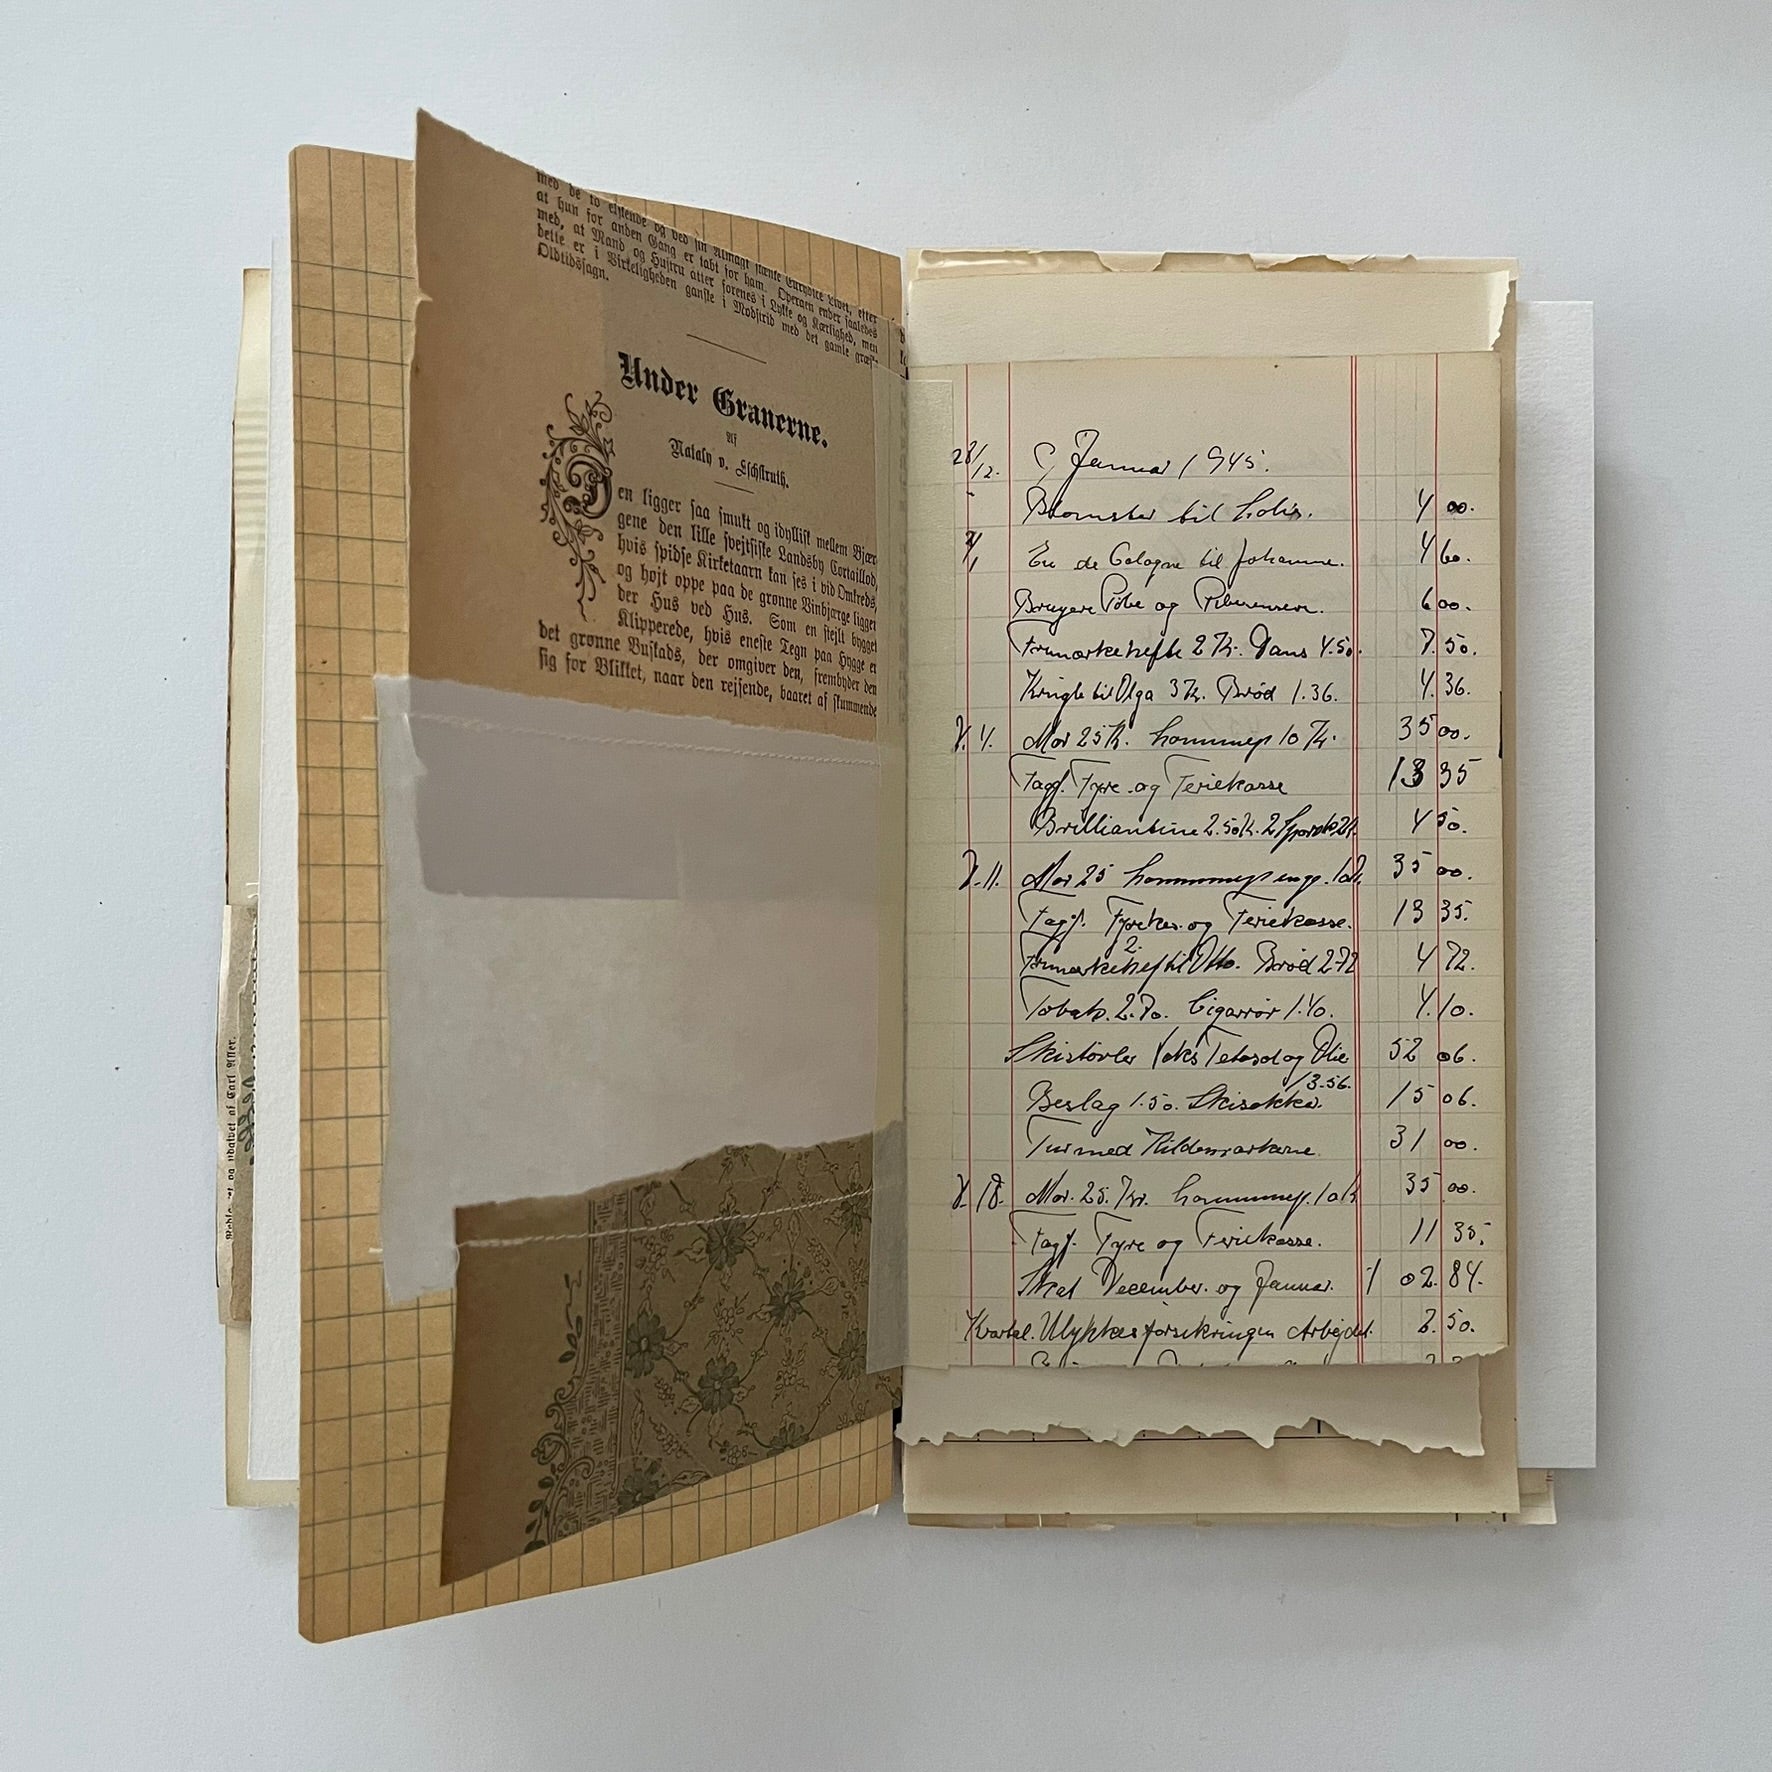 med de to elskende og ved sin Almagt skænke Eurydice Livet, efter
at hun for anden Gang er tabt for ham. Operaen ender saaledes
med, at Mand og Hustru atter forenes i Lykke og Kærlighed, men
dette er i Virkeligheden ganske i Modstrid med det gamle græs-
Oldtidssagn.
Under Granerne.
Af
Nataly v. Eschstruth.
Den ligger saa smukt og idyllisk mellem Bjær
gene den lille svejtsiske Landsby Cortaillod,
hvis spidse Kirketaarn kan ses i vid Omkreds,
og højt oppe paa de grønne Vinbjærge ligger
der Hus ved Hus. Som en stejlt bygget
Klipperede, hvis eneste Tegn paa Hygge er
det grønne Buskads, der omgiver den, frembyder den
sig for Blikket, naar den rejsende, baaret af skummende
og udgivet af Carl Aller.
28/12. Januar 1945.
Blomster til 4 00.
Eu de Cologne til Johanne. 4 60.
Bruyere Pibe og Piberensere. 6 00.
Frimærkehefte 2 Kr. Dans 4.50. 7.50.
Kringle til Olga 3 Kr. Brød 1.36. 4.36.
4. Mor 25 Kr. 10 Kr. 35 00.
Fagf. Fyre. og Feriekasse 13 35
Brilliantine 2.50 Kr. 2 4 50.
11. Mor 25 35 00.
Fagf. Fyrekas. og Feriekasse. 13 35.
2.
Frimærkehef til Otto. Brød 2.72 4 72.
Tobak. 2.70. Cigarrør 1.40. 4.10.
Skistøvler Voks Tetasol og Olie 52 06.
13.56.
Beslag 1.50. Skisokker. 15 06.
Tur med Kildemarkerne 31 00.
18. Mor. 25. Kr. 35 00.
Fagf. Fyre og Feriekasse. 11 35.
Skat December. og Januar. 1 02.84.
Kvartal. Ulykkesforsikringen Arbejdet. 2.50.